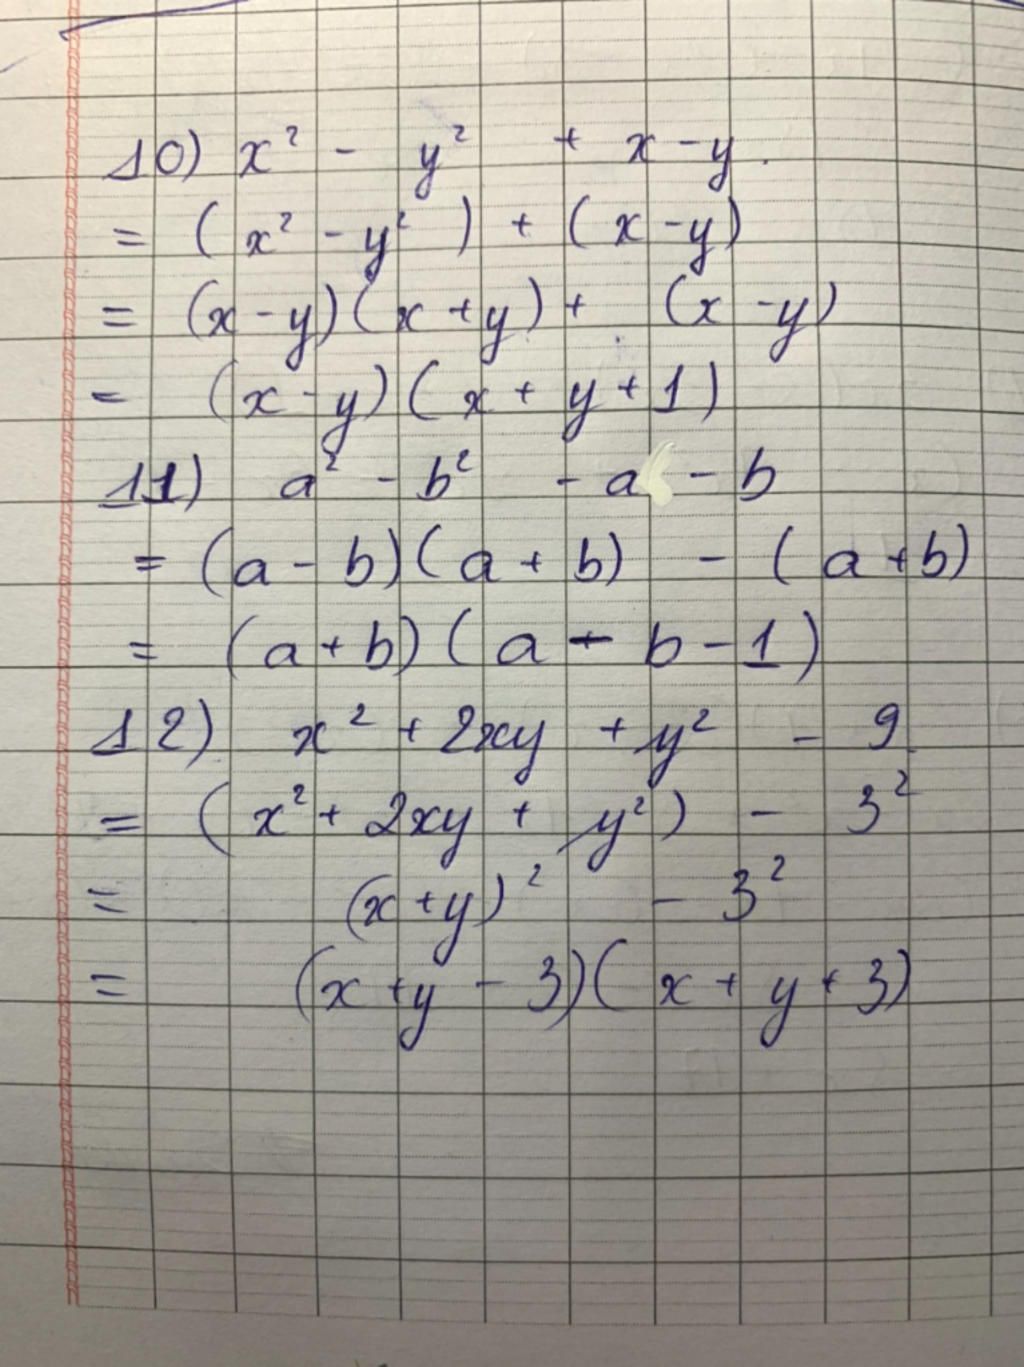 10) x² - y² + x - y.
= (x² - y²) + (x - y)
= (x - y)(x + y) + (x - y)
= (x - y)(x + y + 1)
11) a² - b² - a - b
= (a - b)(a + b) - (a + b)
= (a + b)(a - b - 1)
12) x² + 2xy + y² - 9
= (x² + 2xy + y²) - 3²
= (x + y)² - 3²
= (x + y - 3)(x + y + 3)